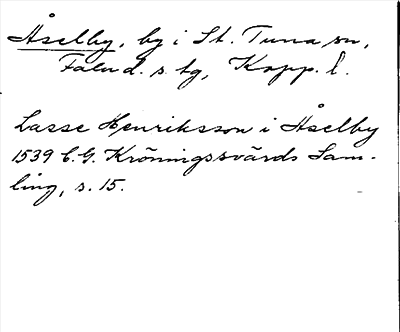 Åselby, by i St. Tuna sn,
Falu d. s. tg, Kopp. l.
Lasse Henriksson i Åselby
1539 C. G. Kröningssvärds Sam-
ling, s. 15.